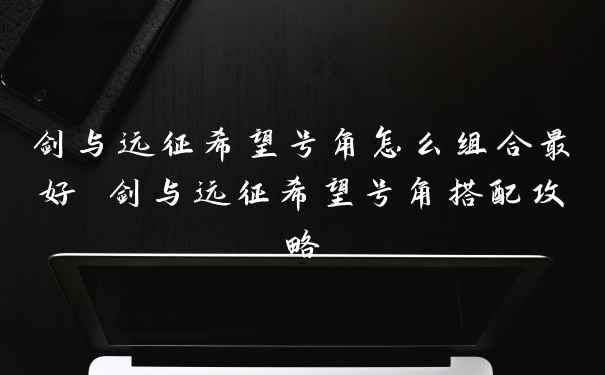 剑与远征希望号角怎么组合最
好 剑与远征希望号角搭配攻
略